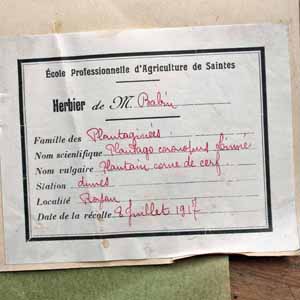 École Professionnelle d'Agriculture de Saintes
Herbier de M. Babin
Famille des Plantaginées
Nom scientifique Plantago coronopus
Nom vulgaire Plantain corne de cerf
Station dunes
Localité Royan
Date de la récolte 2 Juillet 1917